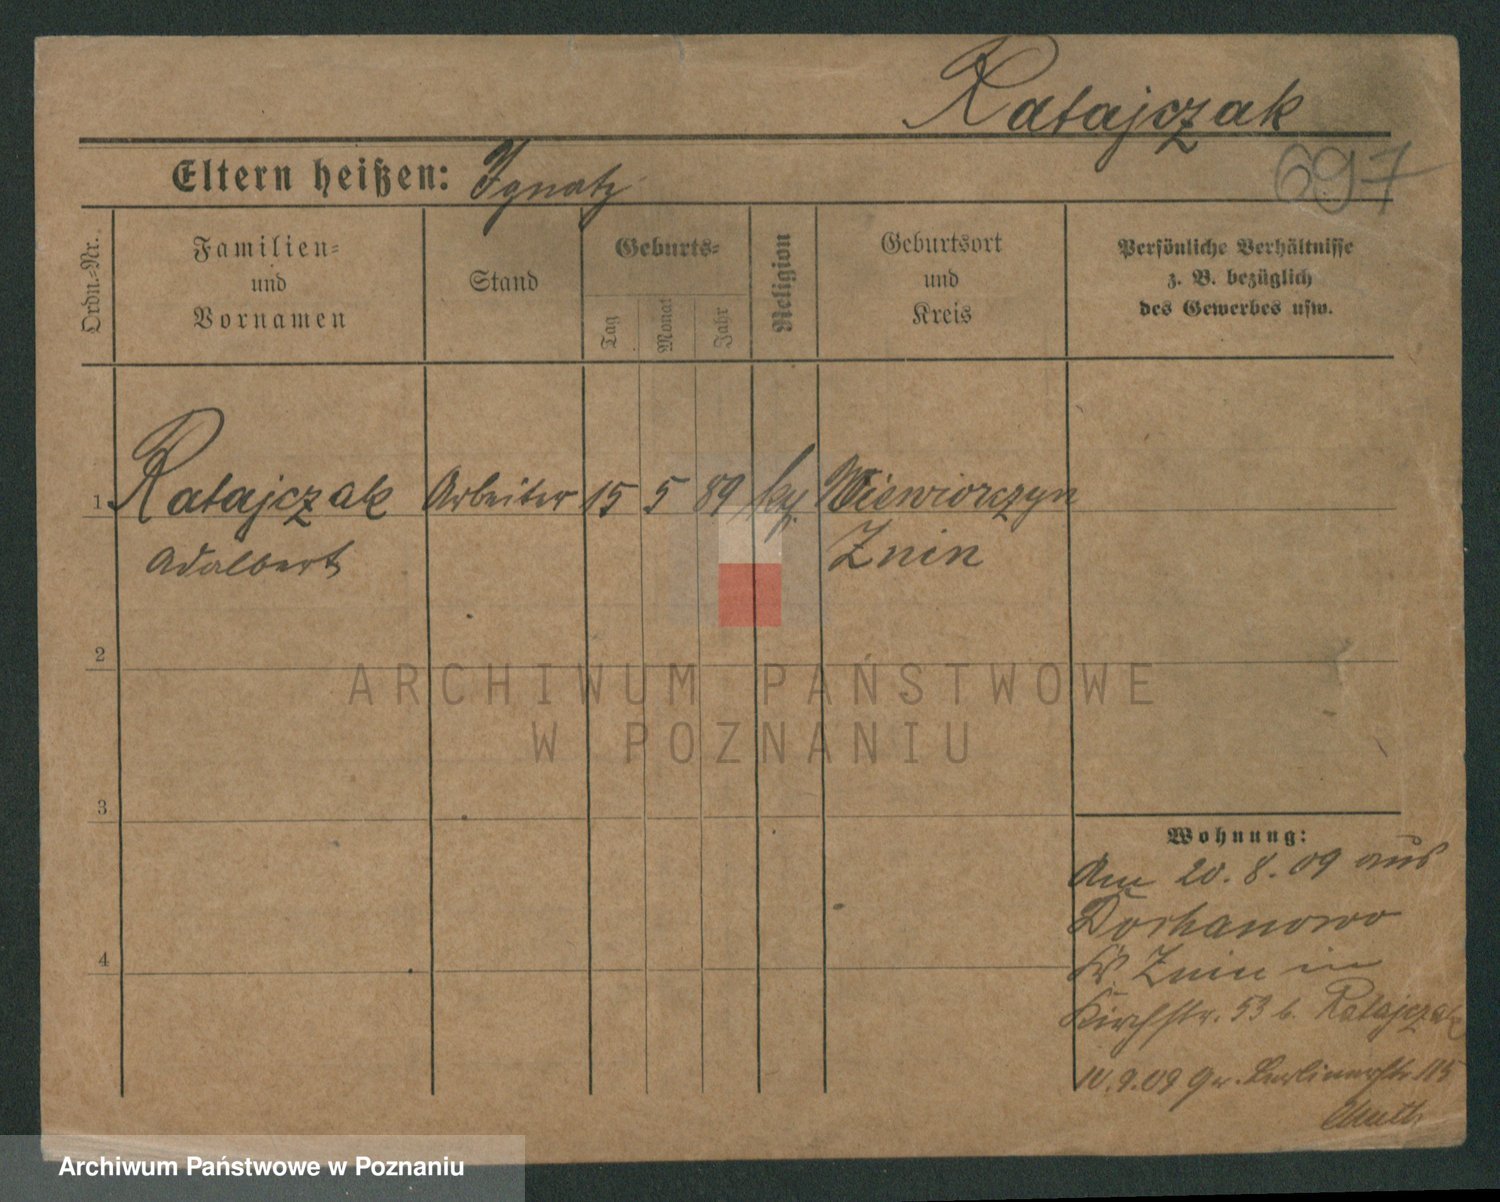 Ratajczak
697
Eltern heißen: Ignatz
Ordn.-Nr.
Familien-
und
Vornamen
Stand
Geburts-
Tag
Monat
Jahr
Religion
Geburtsort
und
Kreis
Persönliche Verhältnisse
z. B. bezüglich
des Gewerbes usw.
1 Ratajczak Arbeiter 15 5 89 Wiewiorczyn
Adalbert Znin
2
ARCHIWUM PAŃSTWOWE
W POZNANIU
3
4
Wohnung:
Am 20.8.09 aus
Dochanowo
Kr. Znin in
Kirchstr. 53 b. Ratajczak
10.9.09 Gr. Berlinerstr 115
Archiwum Państwowe w Poznaniu